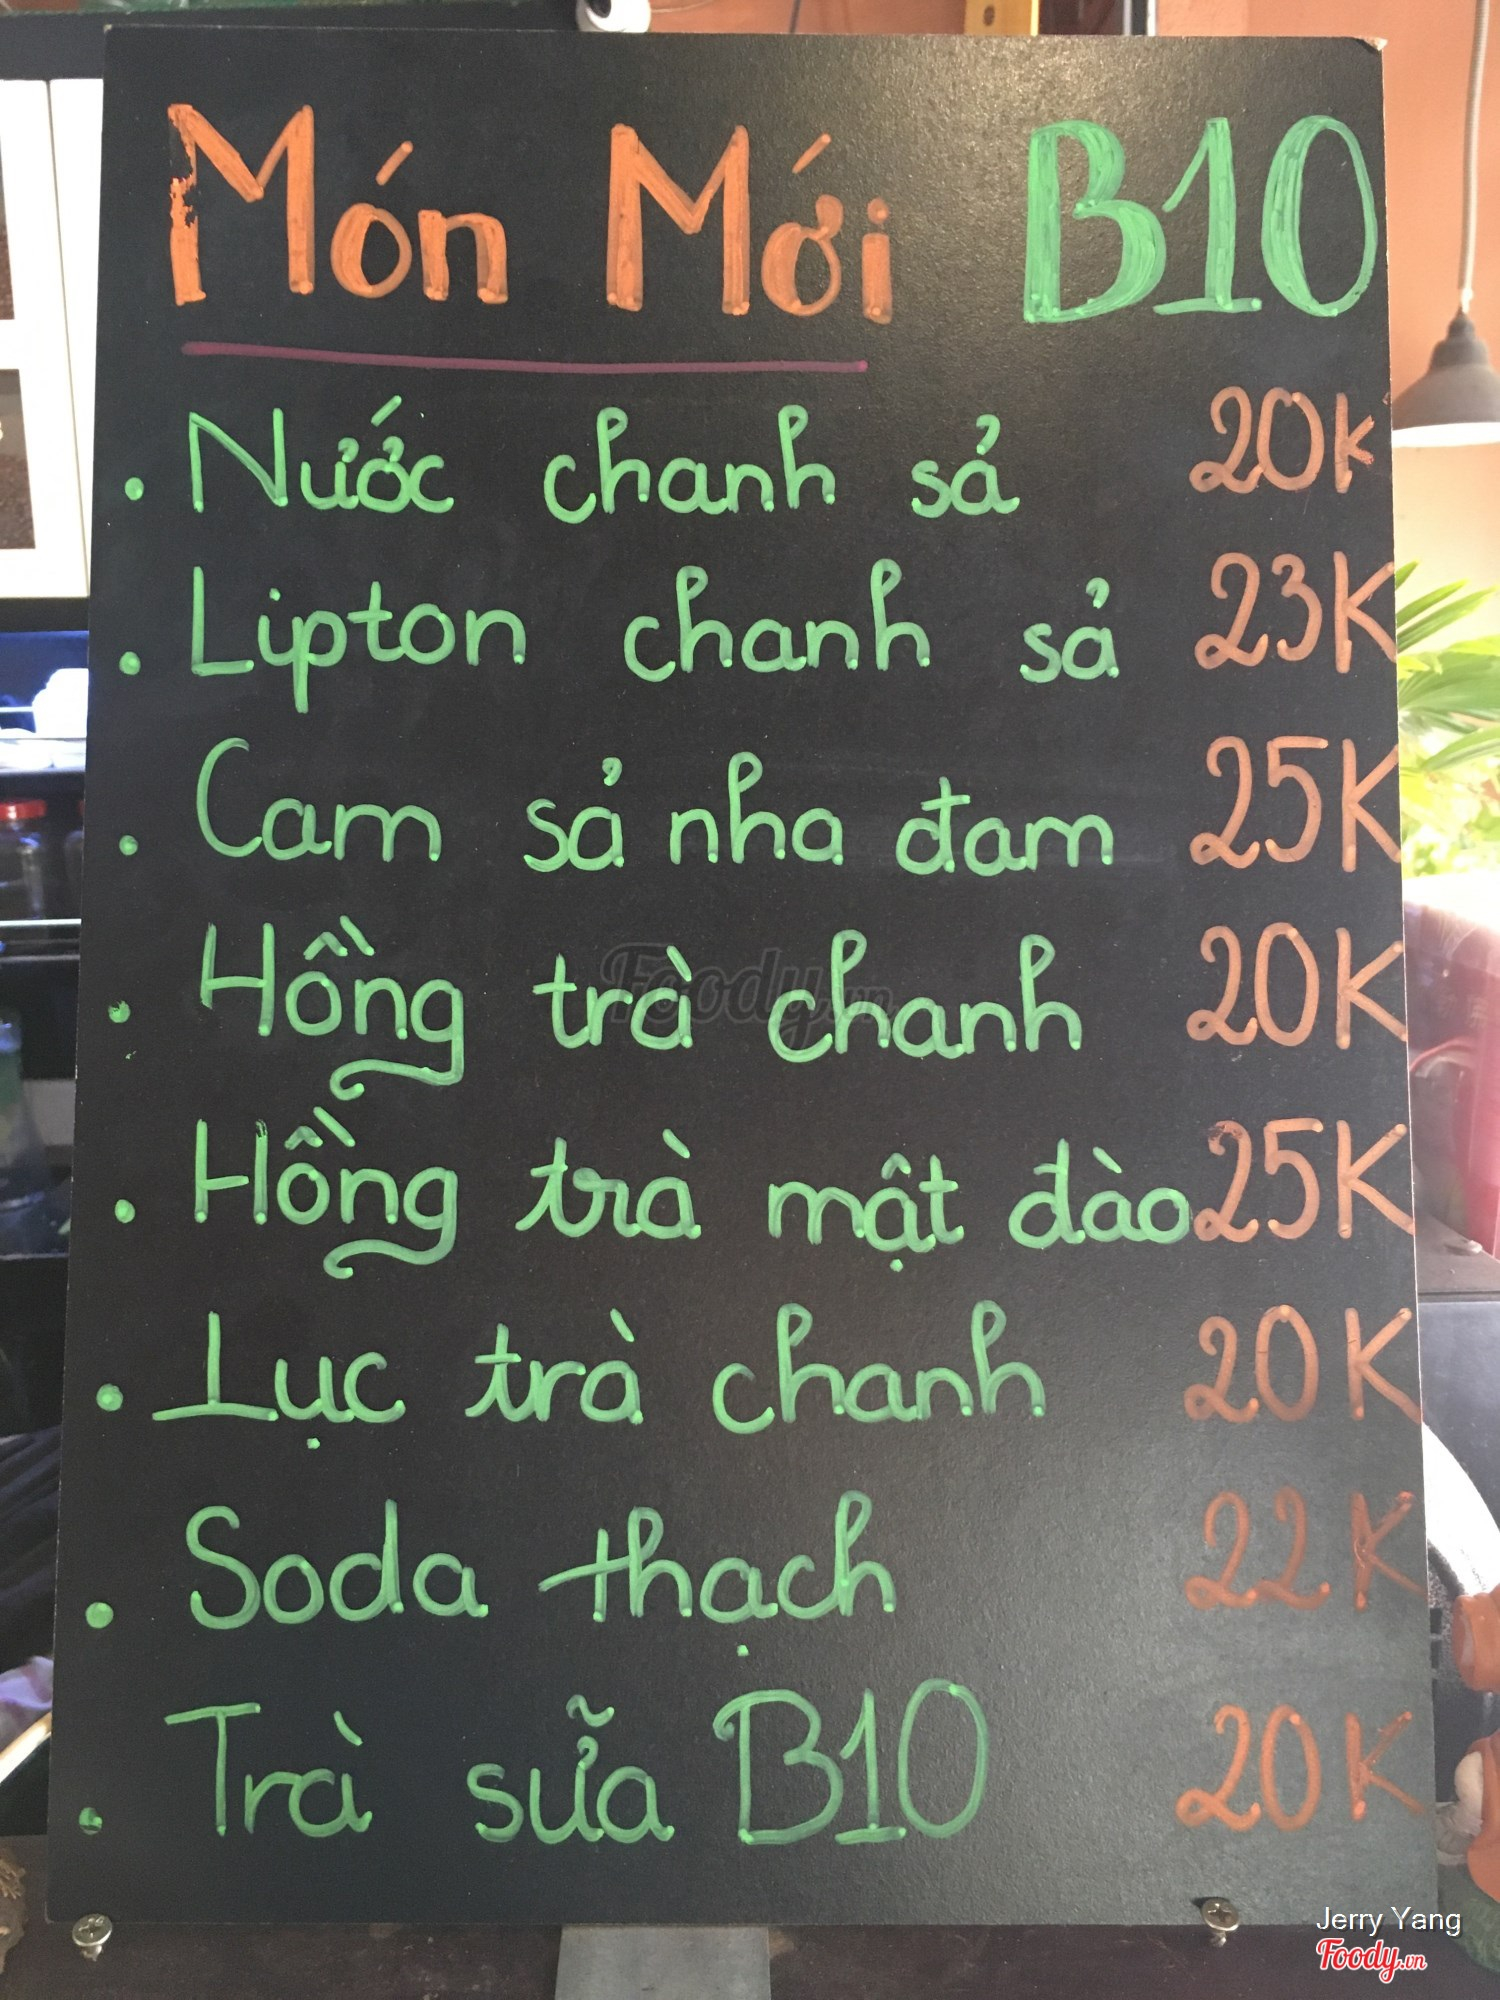 Món Mới B10
. Nước chanh sả 20K
. Lipton chanh sả 23K
. Cam sả nha đam 25K
. Hồng trà chanh 20K
. Hồng trà mật đào 25K
. Lục trà chanh 20K
. Soda thạch 22K
. Trà sữa B10 20K
Foody.vn
Jerry Yang
Foody.vn